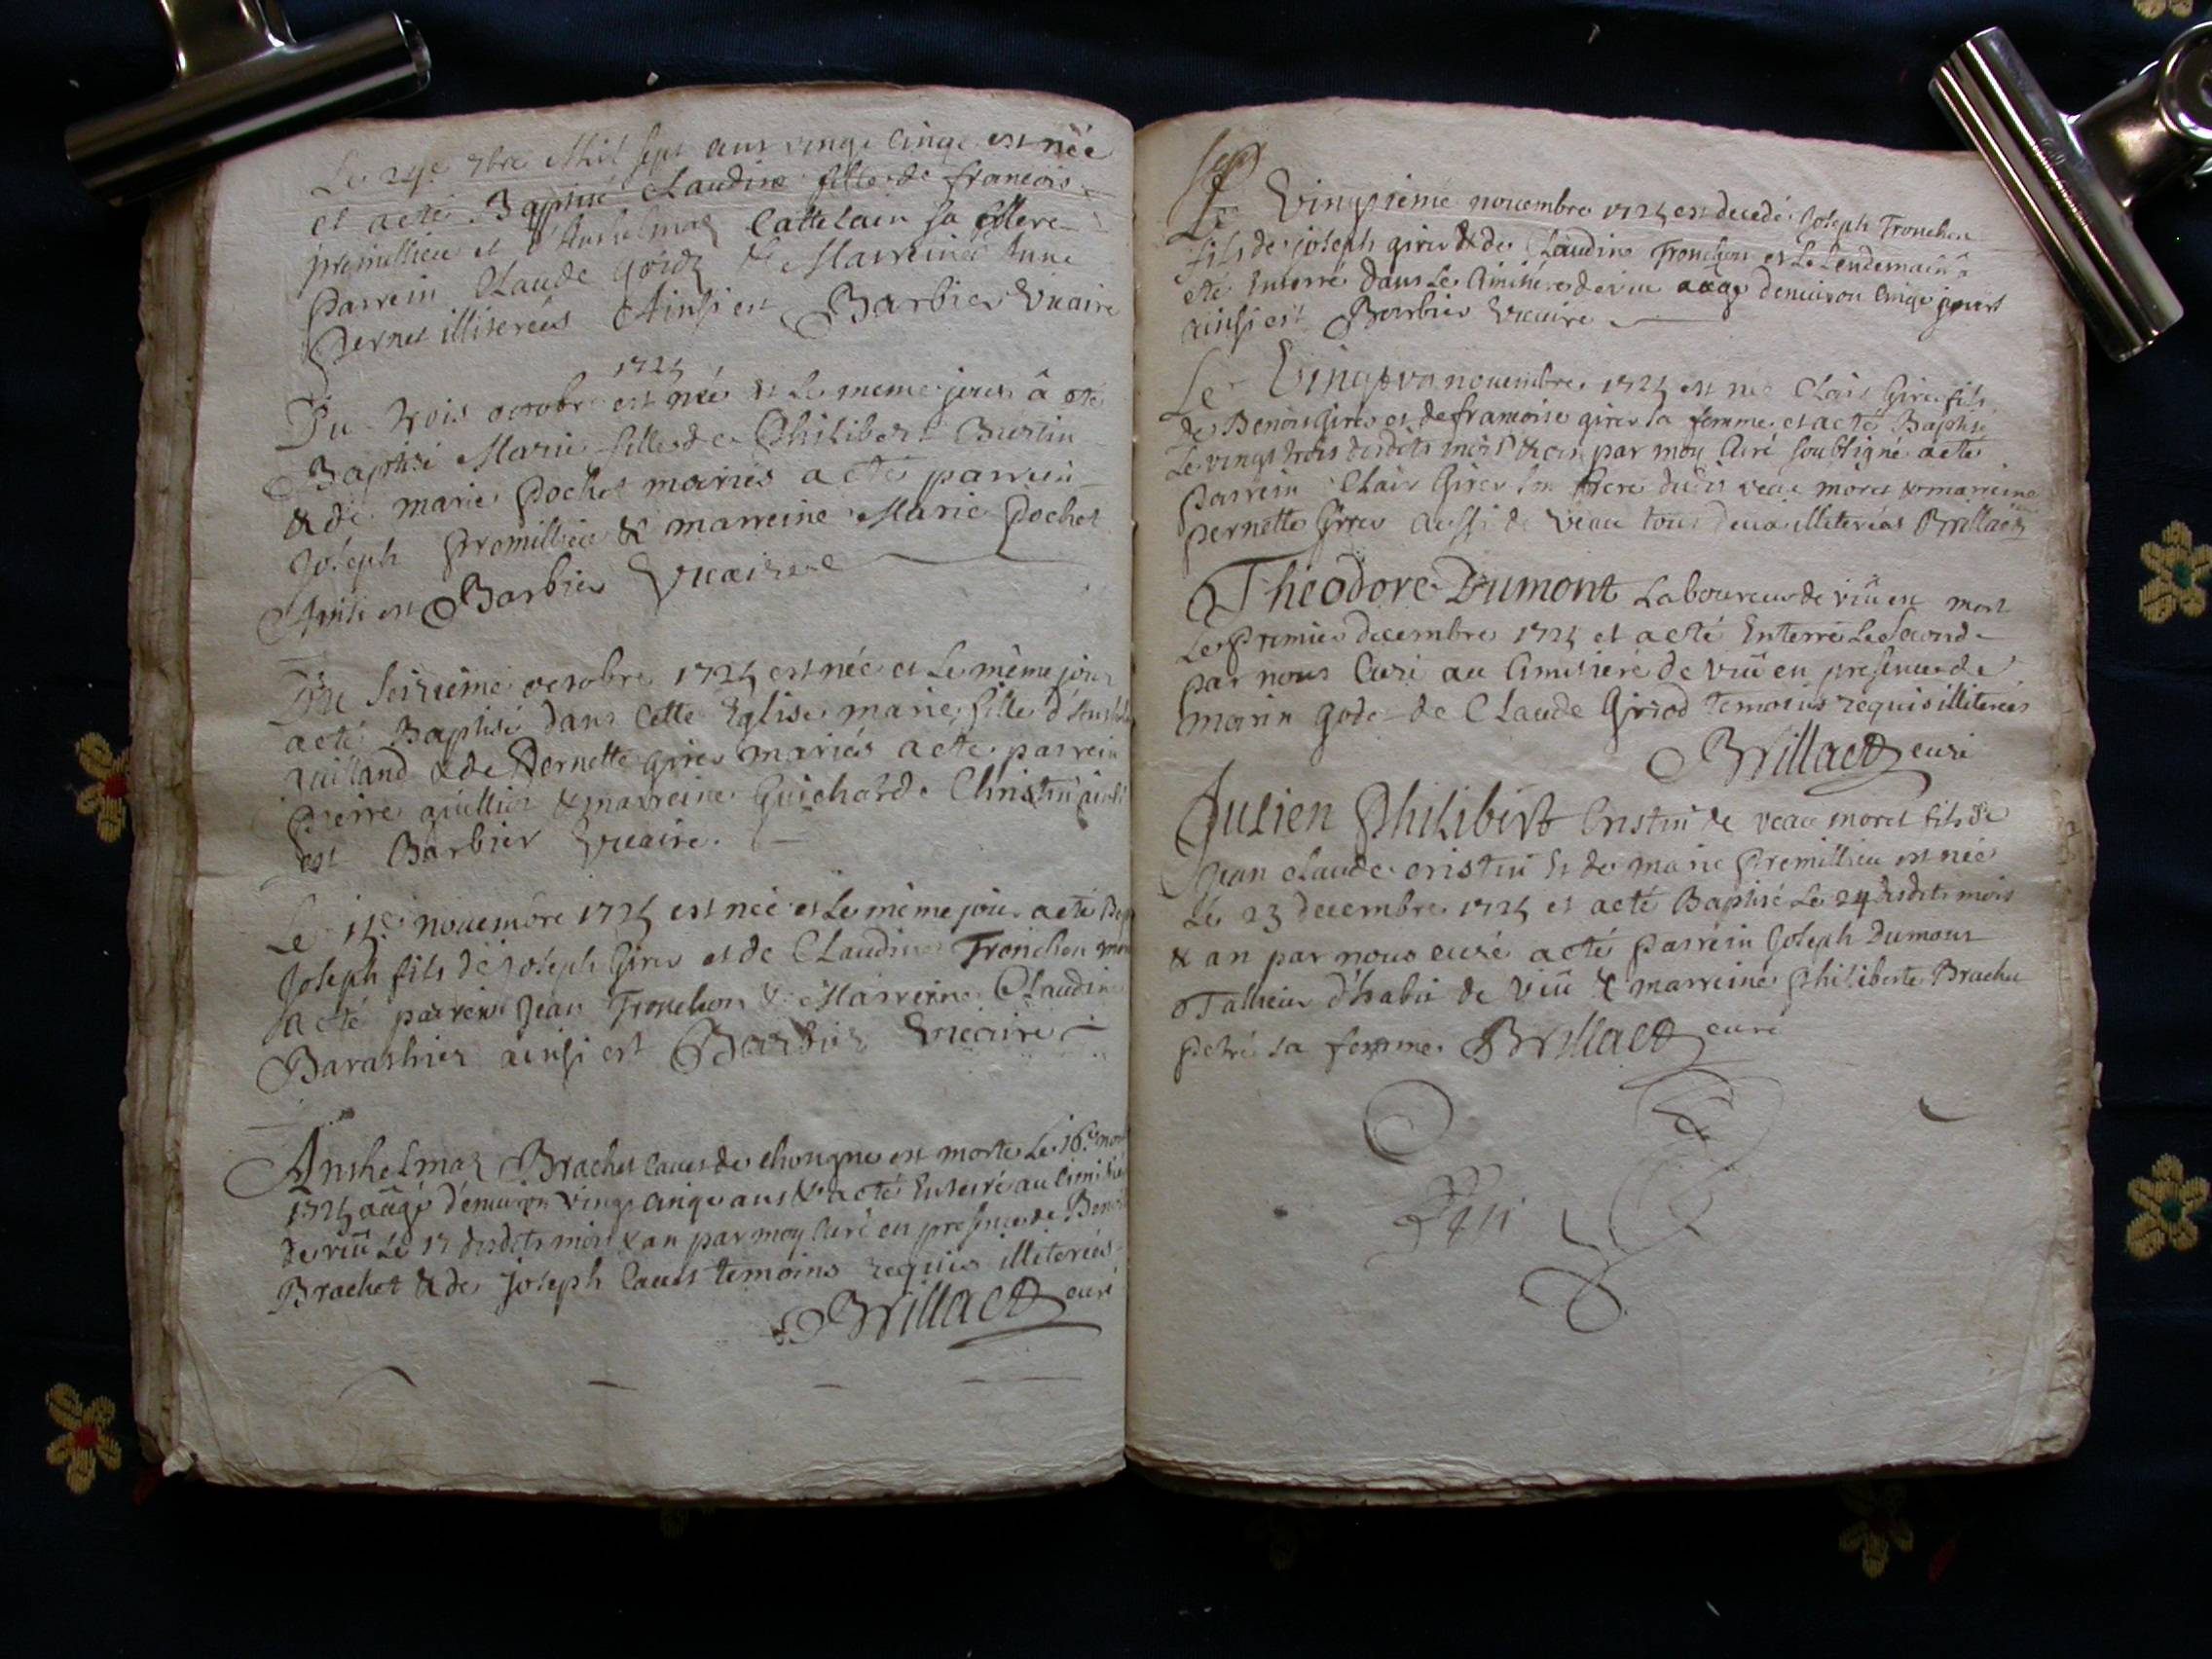 Le 24e 7bre Mil sept cens vingt cinq est née
et a eté Baptisé Claudine fille de francois
premillieu et d'Anshelmaz Cattelain sa Mere
parrein Claude Goidz & Marreine Anne
Pernet illiterées Ainsi est Barbier Vicaire
1725
Du trois octobre est née et le meme jour â eté
Baptisé Marie fille de Philibert Burtin
& de marie Pochet mariés a eté parrein
Joseph Promillieu & marreine Marie Pochet
Ainsi est Barbier Vicaire
Du seizieme octobre 1725 est née et le même jour
a eté Baptisé dans cette Eglise marie fille d'
& de Pernette girer mariés a eté parrein
pierre & marreine Guicharde Christin ainsi
est Barbier Vicaire.
Le 15e novembre 1725 est née et le même jour a eté Bap
Joseph fils de joseph Girer et de Claudine Tronchon
a eté parrein Jean Tronchon & Marreine Claudine
ainsi est Barbier Vicaire
Anshelmaz Brachet de chongne est morte le 16e
1725 aûgé d'environ vingt cinq ans & a eté Enterré au cimitiere
de viû le 17 desdits mois & an par moy curé en presence de Benoit
Brachet & de joseph temoins requis illiterées
Brillact curé
Le Vingtieme novembre 1725 est decedé Joseph Tronchon
fils de joseph girer & de Claudine Tronchon et le lendemain â
eté Enterré dans le cimitiere de viu aagé denviron cinq jours
ainsi est Barbier Vicaire
Le Vingt un novembre 1725 est né Clair Girer fils
de Benoit Girer et de francoise girer sa femme et a eté Baptisé
le vingt trois desdits mois & an par moy Curé soubsigné a eté
parrein Clair Girer son frere dudit veau moret & marreine
pernette Girer aussi de veau tous deux illiterées Brillact
Theodore Dumont Laboureur de viû est mort
le Premier decembre 1725 et a eté Enterré le second
par nous Curé au cimitiere de viû en presence de
marin gode de Claude Girod temoins requis illiterées
Brillact curé
Julien Philibert Cristin de veau moret fils de
Jean claude cristin & de marie Premillieu est née
le 23 decembre 1725 et a eté Baptisé le 24 desdits mois
& an par nous curé a eté parrein Joseph Dumont
Tallieur d'habit de viû & marreine Philiberte Brachet
sa femme Brillact curé